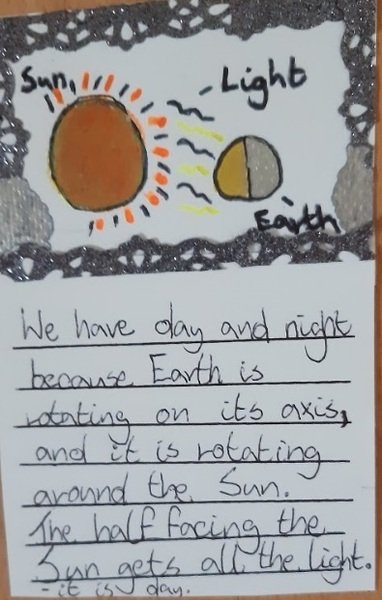 Sun,
Light
Earth
We have day and night
because Earth is
rotating on its axis,
and it is rotating
around the Sun.
The half facing the
Sun gets all the light.
- it is day.